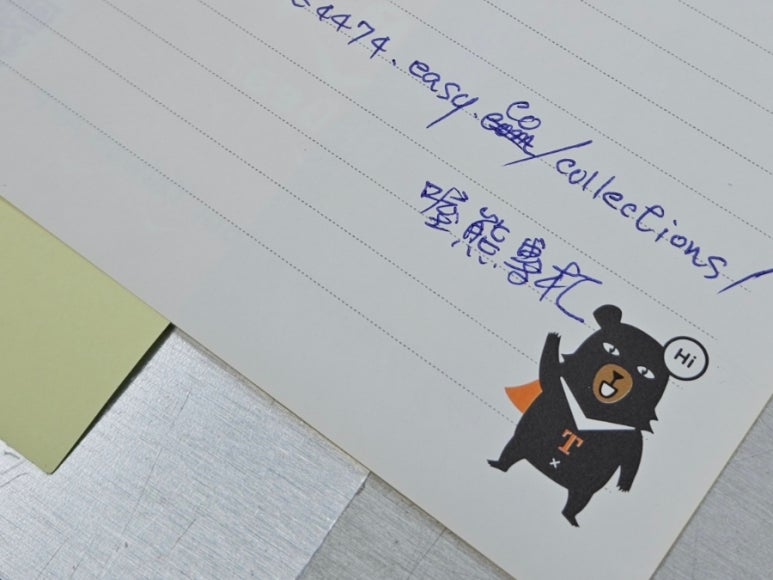 4474.easy.co/collections/
喔熊
Hi
T